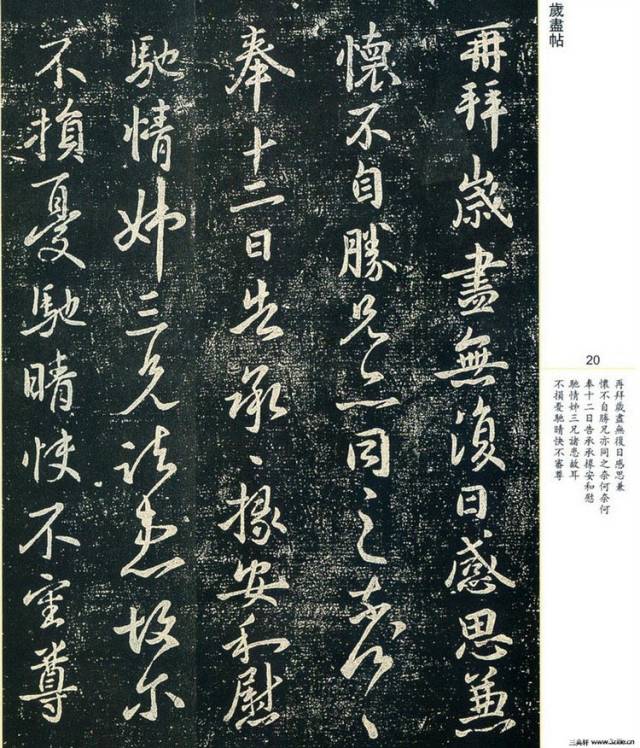 歲盡帖
再拜歲盡無復日感思兼
懷不自勝兄亦同之奈何
奉十二日告承承掾安和慰
馳情姊三兄諸患故尔
不損憂馳晴快不審尊
20
再拜歲盡無復日感思兼
懷不自勝兄亦同之奈何奈何
奉十二日告承承掾安和慰
馳情姊三兄諸患故耳
不損憂馳晴快不審尊
www.3cslw.cn